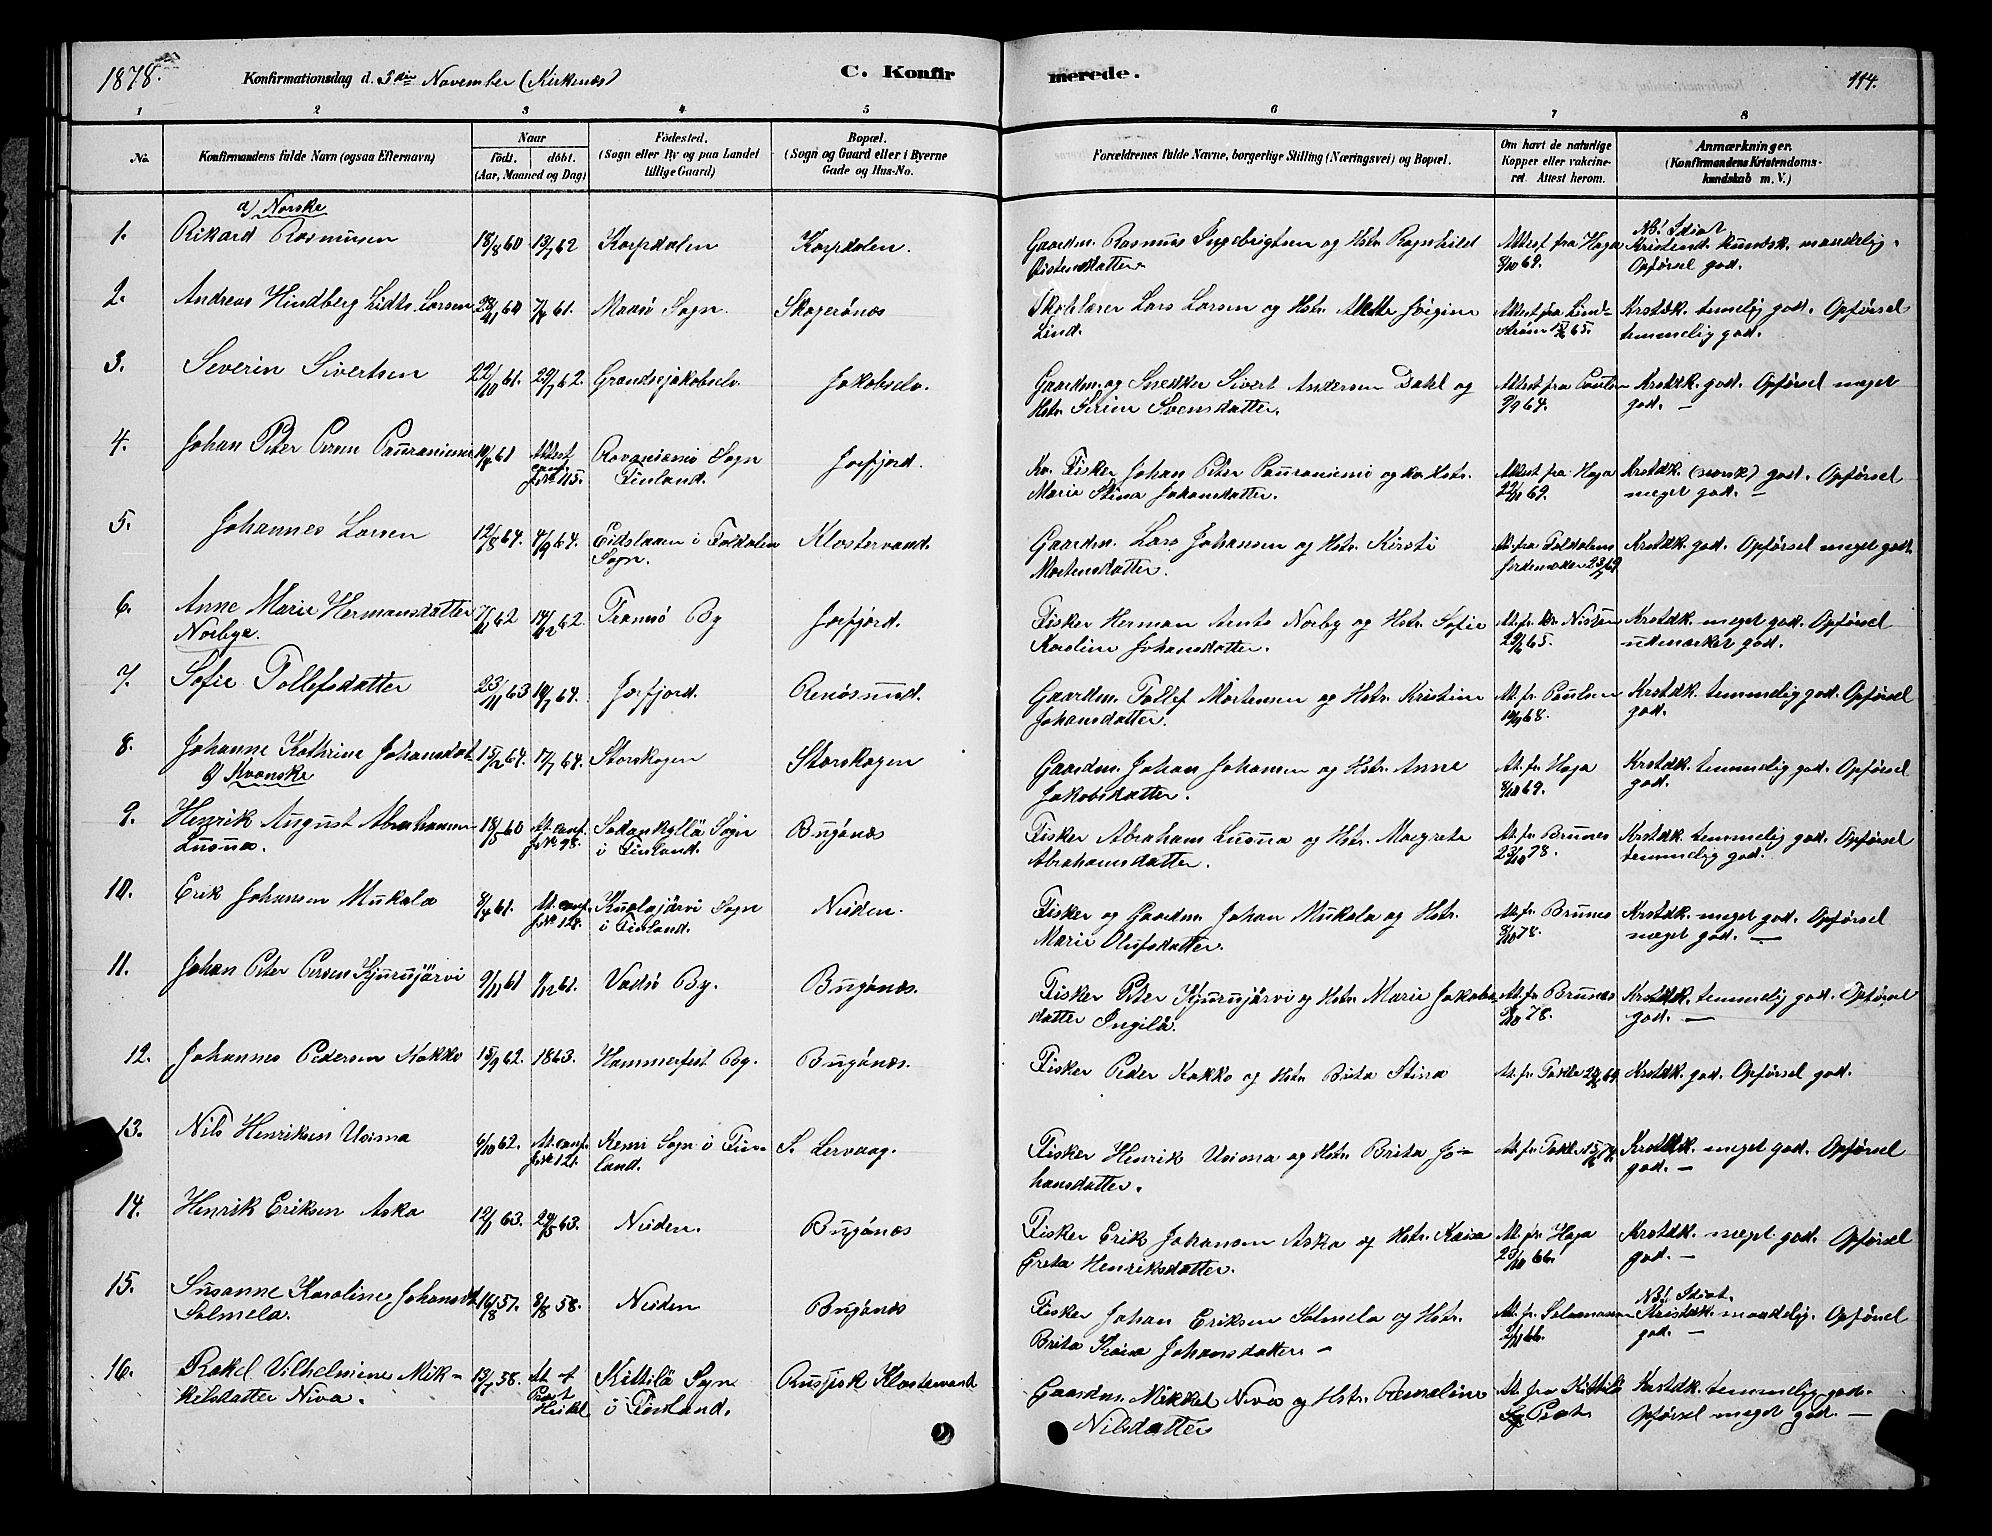 1878. Konfirmationsdag d. 3die November (Kirkenæs) C. Konfir merede. 114.
1 2 3 4 5 6 7 8
No.
Konfirmandens fulde Navn (ogsaa Efternavn)
Naar
født. døbt.
(Aar, Maaned og Dag)
Fødested.
(Sogn eller By og paa Landet
tillige Gaard)
Bopæl.
(Sogn og Gaard eller i Byerne
Gade og Hus-No.
Forældrenes fulde Navne, borgerlige Stilling (Næringsvei) og Bopæl.
Om havt de naturlige
Kopper eller vakcine-
ret. Attest herom.
Anmærkninger.
(Konfirmandens Kristendoms-
kundskab m. V.)
a) Norske
1. Rikard Rasmusen 18/8 60 13/7 62 Korpdalen Korpdalen. Gaardm. Rasmus Ingebrigtsen og Hstr. Ragnhild Attest fra Haga NB! Idiot
Øistensdatter. 8/10 69. Kristend. kundsk. maadelig.
Opførsel god.
2. Andreas Hindberg Larsen 61. Maasø Sogn. Skogerønæs Lars Larsen og Hstr. Lind. Attest fra Lind-
strøm 65. Krstdk. temmelig god. Opførsel
temmelig god.
3. Severin Sivertsen 22/10 61. 29/7 62. Grændsejakobselv. Jakobselv. Gaardm. og Snedker Sivert Andersen Dahl og
Hstr. Serine Svensdatter. Attest fra 64. Krstdk. god. Opførsel meget
god. —
4. Johan Peter Persen Pauraniemi 61 Attest
conf.
Rovaniemi Sogn
Finland. Jarfjord. Kv. Fisker Johan Peter Pauraniemi og kv. Hstr.
Maria Stina Johansdatter. Attest fra Haga
69. Krstdk. (norsk) god. Opførsel
meget god. —
5. Johannes Larsen 12/8 64. 4/9 64. i Foldalen
Sogn. Klostervand. Gaardm. Lars Johansen og Hstr. Kirsti
Mortensdatter. At. fra Foldalens
Krstdk. god. Opførsel meget god.
6. Anne Marie Hermansdatter
Norbye. 62 62. Tromsø By Jarfjord. Fisker Herman Norby og Hstr. Sofie
Karoline Johansdatter. At. fr. Nissen
65. Krstdk. meget god. Opførsel
udmærket god.
7. Sofie Tollefsdatter 23/11 63 64. Jarfjord. Renøsund. Gaardm. Tollef Mortensen og Hstr. Kristine
Johansdatter. At. fr. Paulsen
68. Krstdk. temmelig god. Opførsel
god.
8. Johanne Kathrine Johansdat. 15/2 64. 17/7 64. Storskogen Storskogen Gaardm. Johan Johansen og Hstr. Anne
Jakobsdatter. At. fr. Haga
8/10 69. Krstdk. temmelig god. Opførsel
god.
b) Kvænske
9. Henrik August Abrahamsen
Lusua. 60 At. conf.
98. Sodankyllä Sogn
i Finland. Bugønæs Fisker Abraham Lusua og Hstr. Margrete
Abrahamsdatter. At. fr. Brunes
23/10 78. Krstdk. temmelig god. Opførsel
temmelig god.
10. Erik Johansen Mukala 8/4 61. At. conf.
Kuolajärvi Sogn
i Finland. Neiden. Fisker og Gaardm. Johan Mukala og Hstr.
Marie Olufsdatter. At. fr. Brunes
78. Krstdk. meget god. Opførsel
meget god. —
11. Johan Peter Persen Kjurujärvi 9/11 61 61. Vadsø By. Bugønæs. Fisker Peter Kjurujärvi og Hstr. Marie Jakobs
datter Ingilä. At. fr. Brunes
78. Krstdk. temmelig god. Opførsel
god. —
12. Johannes Pedersen Kokko 15/9 62. 1863. Hammerfest By. Bugønæs. Fisker Peder Kokko og Hstr. Brita Stina At. fr. Krstdk. god. Opførsel god.
13. Nils Henriksen Uoima 62. At. conf.
Kemi Sogn i Fin-
land. S. Lervaag. Fisker Henrik Uoima og Hstr. Brita Jo-
hansdatter. At. fr. Krstdk. meget god. Opførsel
god. —
14. Henrik Eriksen Aska 12/1 63. 63. Neiden. Bugønæs Fisker Erik Johansen Aska og Hstr. Kaisa
Greta Henriksdatter. At. fr. Haga
66. Krstdk. meget god. Opførsel
god. —
15. Susanne Karoline Johansdt.
Solmela. 16/8 57. 58. Neiden Bugønæs Fisker Johan Eriksen Solmela og Hstr.
Brita Kaisa Johansdatter — At. fr.
66. NB! Idiot.
Kristdk. maadelig. Opførsel
god. —
16. Rakel Vilhelmine Mik-
kelsdatter Niva. 13/7 58. At. af
Heikel Kittilä Sogn
i Finland. Russisk Klostervand Gaardm. Mikkel Niva og Hstr.
Nilsdatter At. fra Kittilä
Krstdk. temmelig god.
Opførsel meget god. —